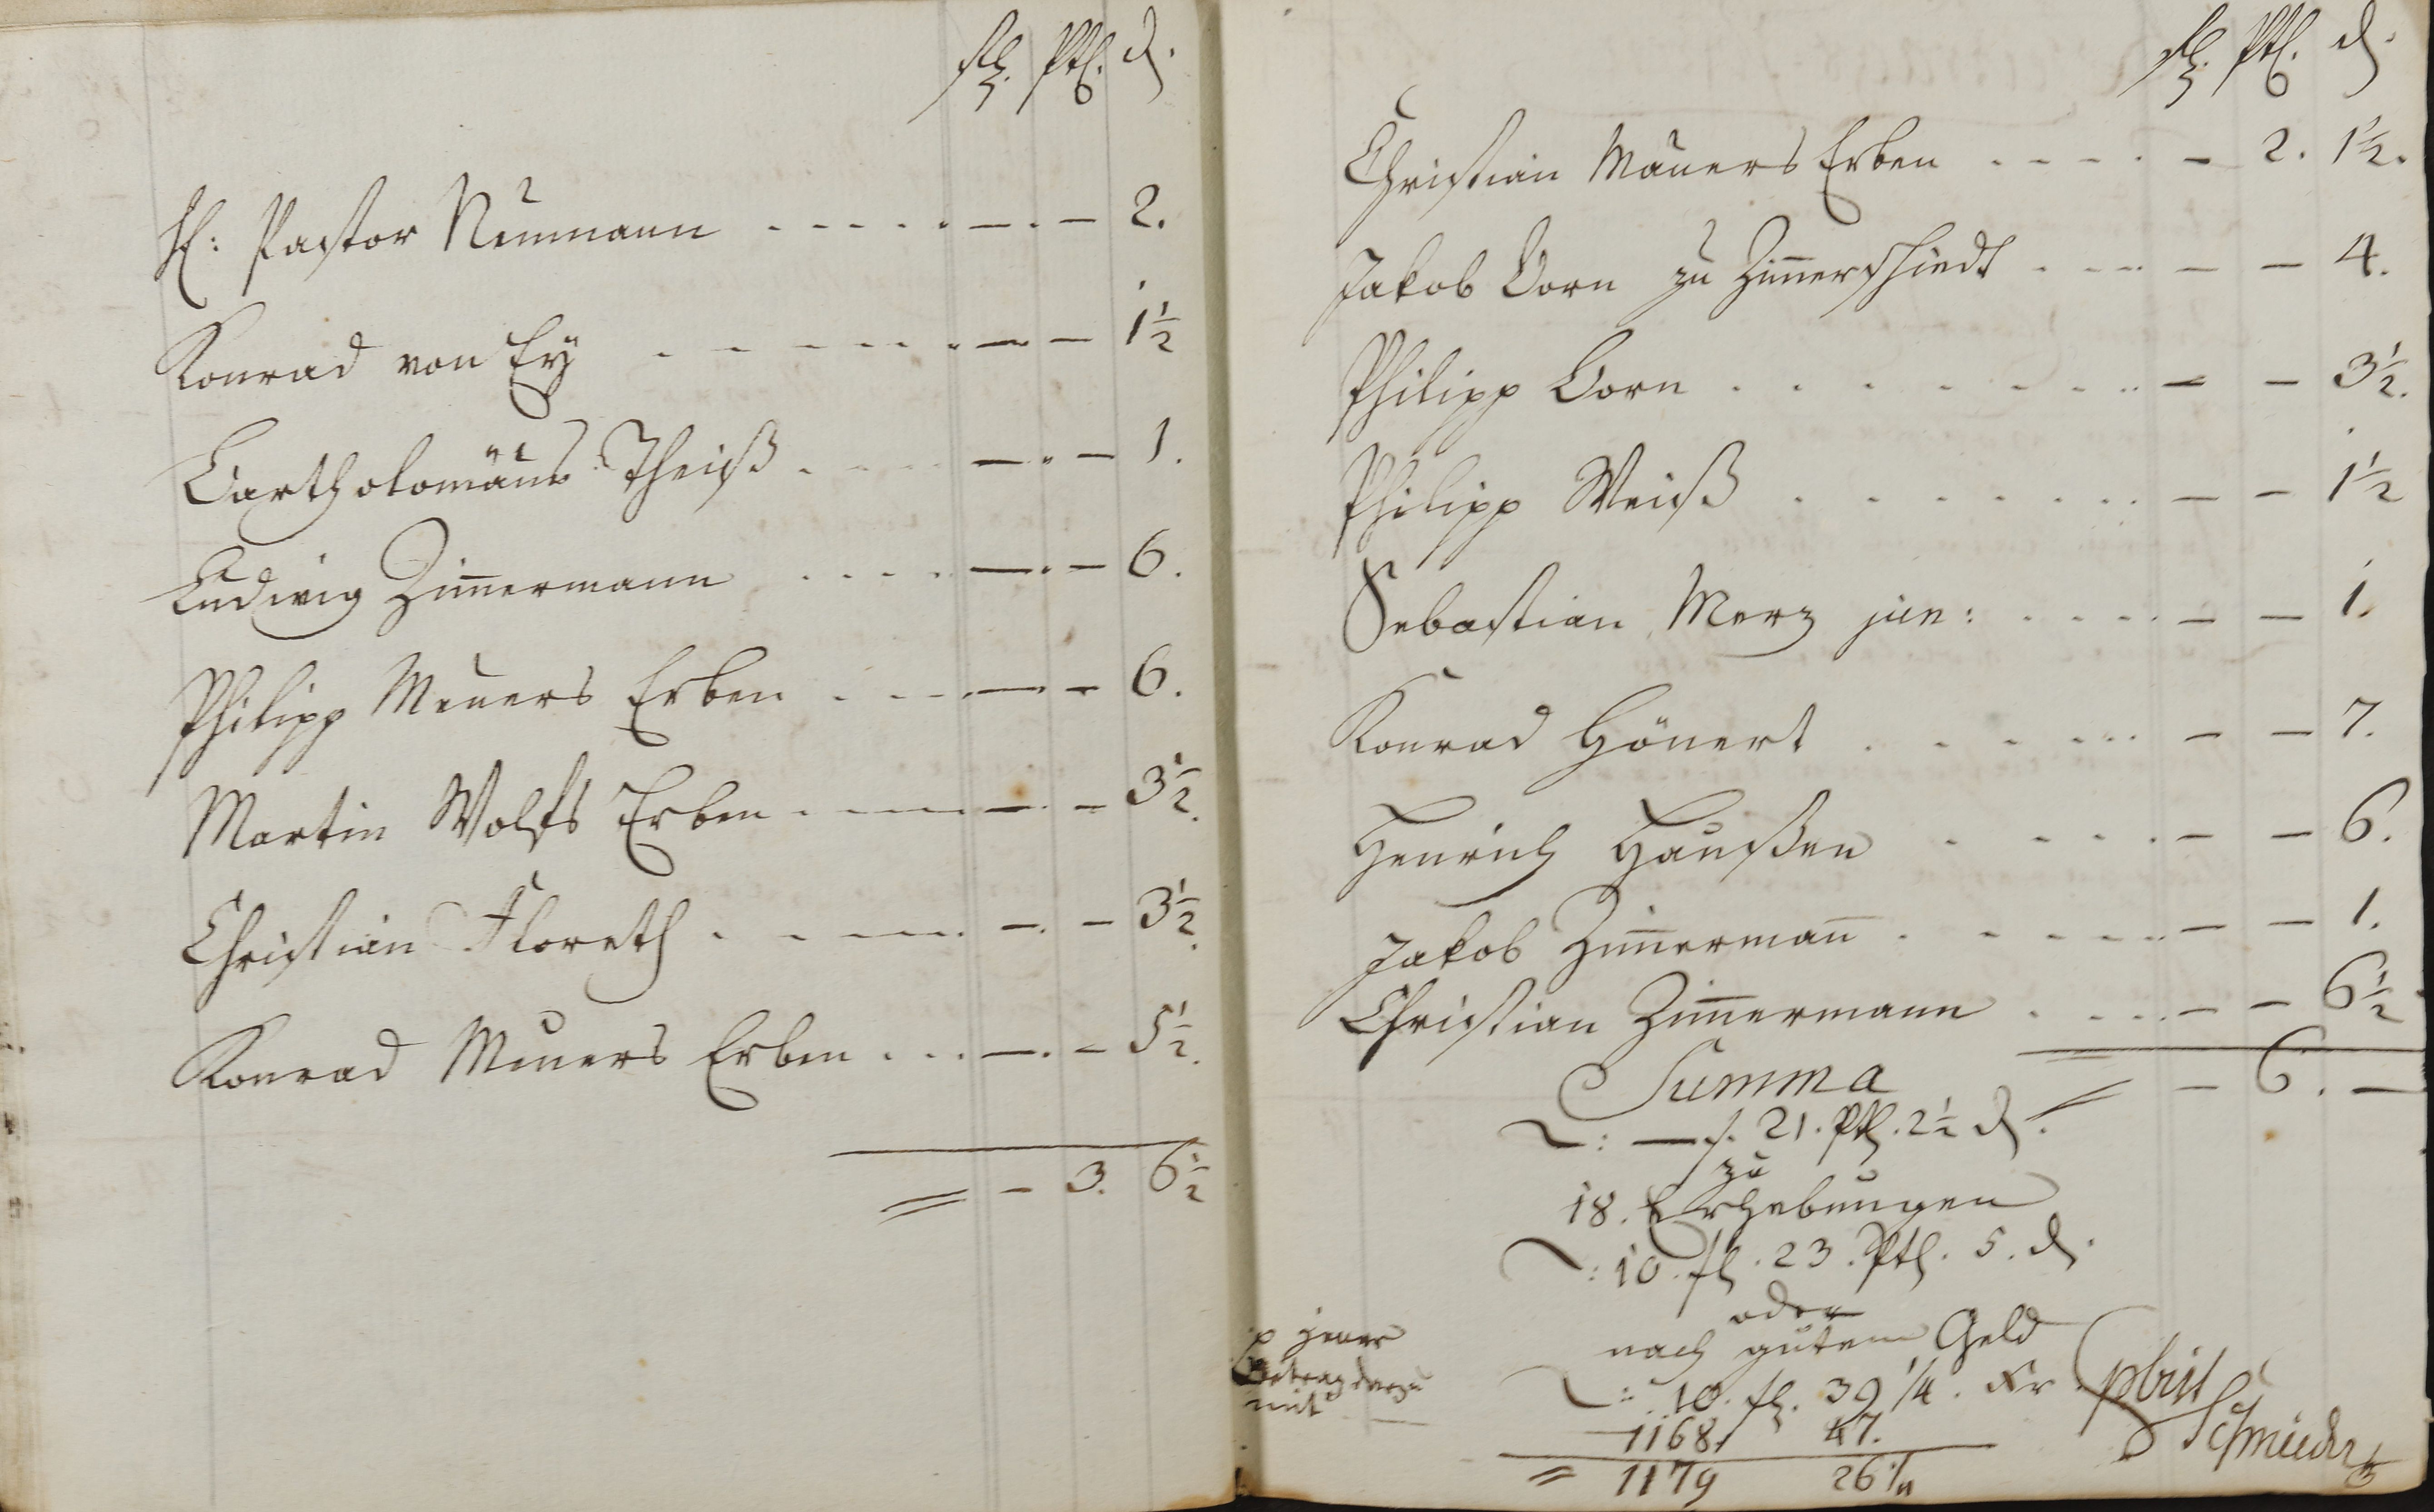 fl. Ptl. d.
H: Pastor Neumann . . . . . — . — 2.
Konrad von Ey . . . . . . — — 1½
Bartholomäus Theiß . . . . — . — 1.
Ludwig Zim̄ermann . . . . — . — 6.
Philipp Meuers Erben . . . — — 6.
Martin Wolfs Erben . . . — — 3½.
Christian Floreth . . . . — . — 3½.
Konrad Meuers Erben . . . — . — 5½.
= — 3. 6½
fl. Ptl. d.
Christian Mauers Erben . . . . — 2. 1½.
Jakob Dorn zu Zim̄erschiedt . . . — — 4.
Philipp Dorn . . . . . . . — — 3½.
Philipp Weiß . . . . . . — — 1½
Sebastian Merz jun: . . . . — — 1.
Konrad Hönert . . . . . — — 7.
Henrich Haußen . . . . — — 6.
Jakob Zim̄erman̄ . . . . . — — 1.
Christian Zim̄ermann . . . . — — 6½
Summa = — 6. —
: — f. 21. Ptl. 2½ d.
zu
18. Erhebungen
: 10. fl. 23. Ptl. 5. d.
oder
nach gutem Geld
: 10. fl. 39 1/4. Kr.
jener
Betrag
mit
1168, 47.
= 1179 26 1/4
pbist
Schmieder